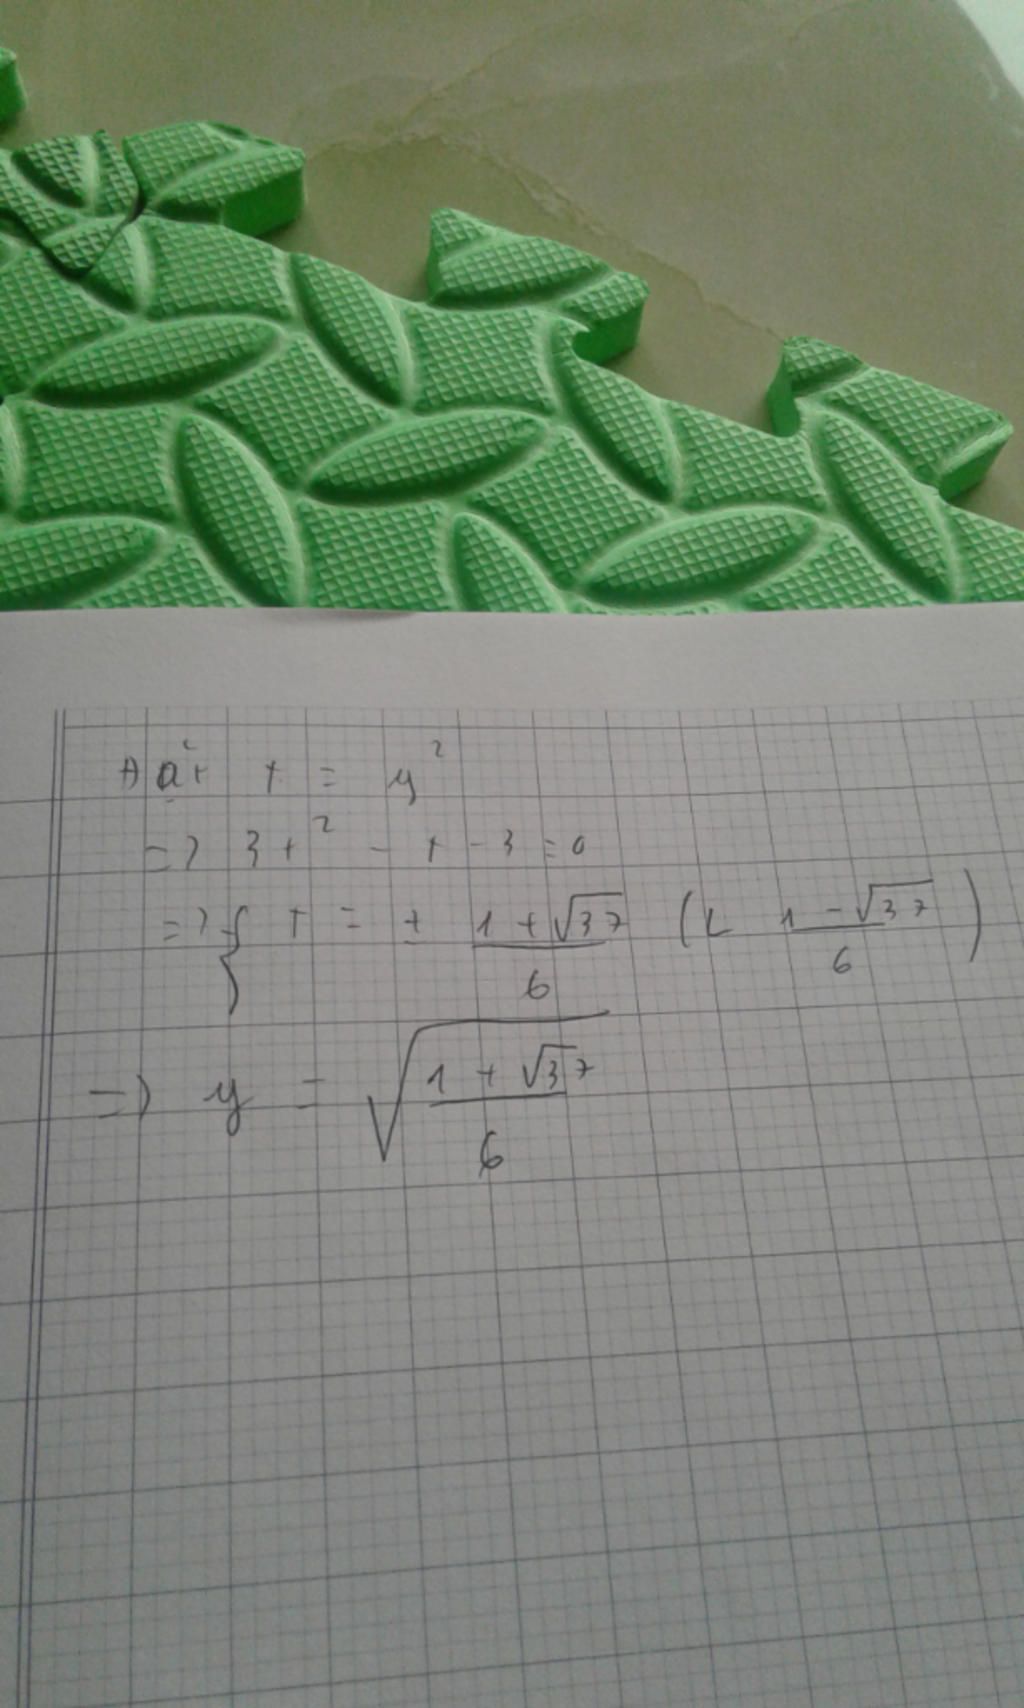 Đặt t = y²
=> 3t² - t - 3 = 0
=> { t = ± (1 + √37)/6 (L (1 - √37)/6)
=> y = √((1 + √37)/6)